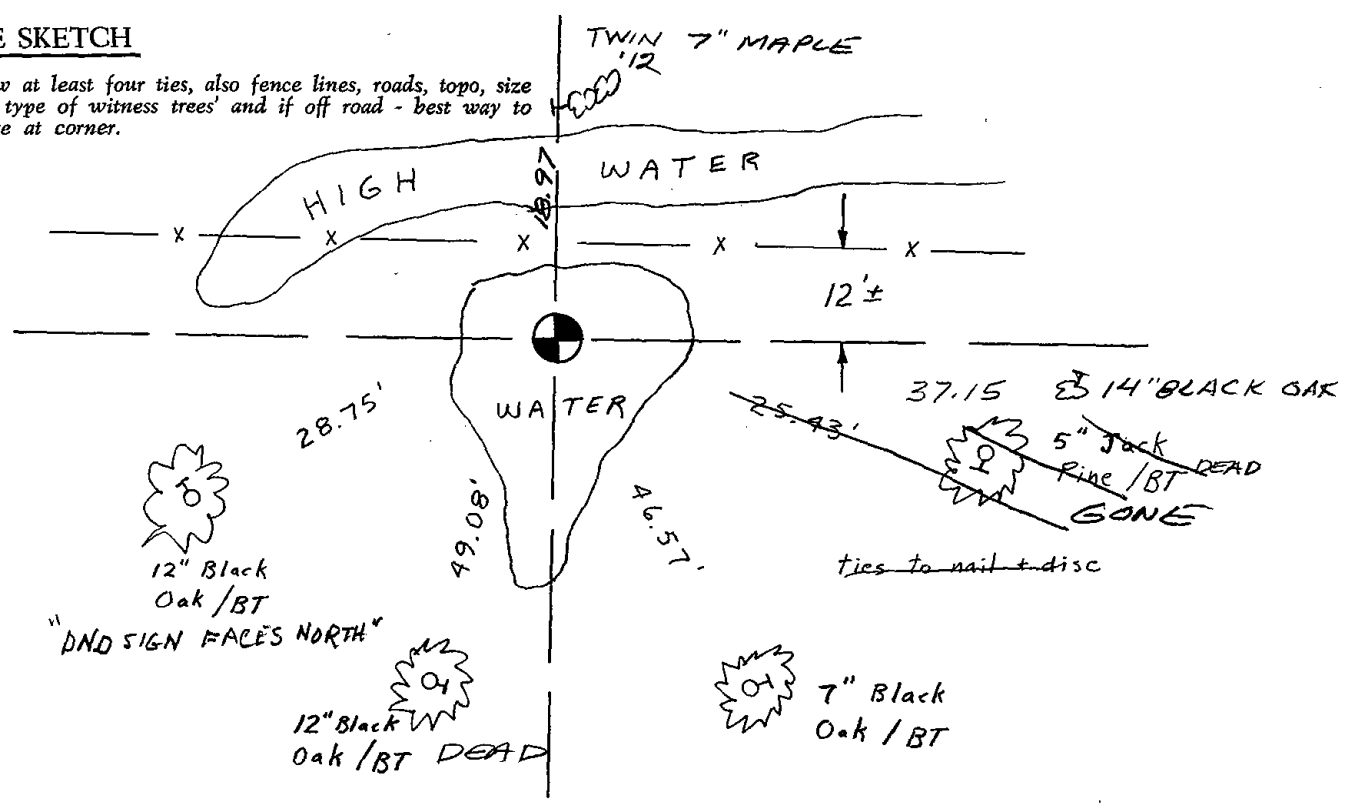 E SKETCH
w at least four ties, also fence lines, roads, topo, size
type of witness trees' and if off road - best way to
e at corner.
TWIN 7" MAPLE
'12
18.97
HIGH WATER
x x x x x
12'±
28.75'
WATER
25.43'
37.15 14" BLACK OAK
5" Jack
Pine /BT DEAD
GONE
49.08'
46.57'
ties to nail + disc
12" Black
Oak /BT
"DND SIGN FACES NORTH"
12" Black
Oak /BT DEAD
7" Black
Oak / BT